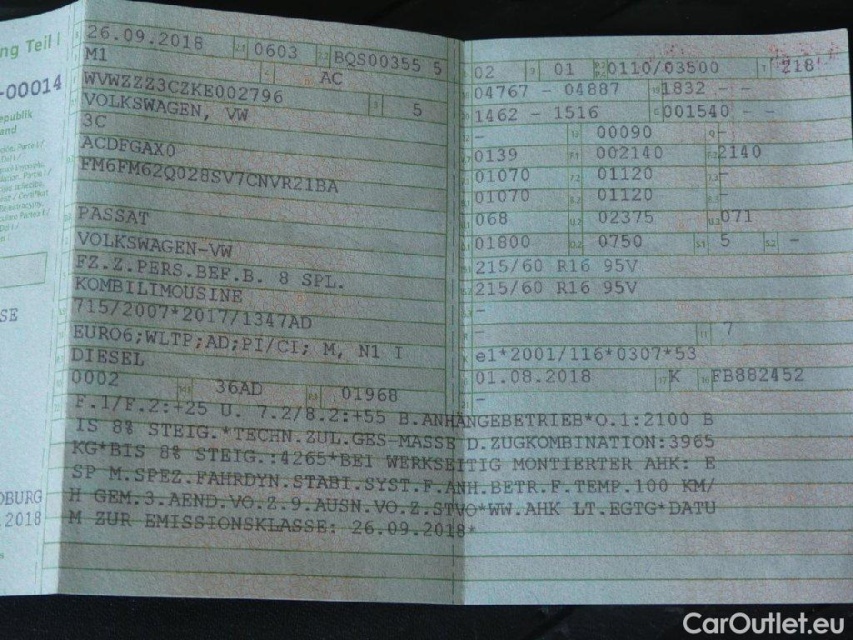 ng Teil I
-00014
epublik
and
SE
OBURG
.2018
26.09.2018 0603 BQS00355 5
M1 AC
WVWZZZ3CZKE002796 5
VOLKSWAGEN, VW
3C
ACDFGAX0
FM6FM62Q028SV7CNVR21BA
PASSAT
VOLKSWAGEN-VW
FZ.Z.PERS.BEF.B. 8 SPL.
KOMBILIMOUSINE
715/2007*2017/1347AD
EURO6;WLTP;AD;PI/CI; M, N1 I
DIESEL
0002 36AD 01968
02 01 0110/03500 218
04767 - 04887 1832 - -
1462 - 1516 001540 - -
- 00090 -
0139 002140 2140
01070 01120 -
01070 01120 -
068 02375 071
01800 0750 5 -
215/60 R16 95V
215/60 R16 95V
-
- 7
e1*2001/116*0307*53
01.08.2018 K FB882452
-
F.1/F.2:+25 U. 7.2/8.2:+55 B.ANHÄNGEBETRIEB*O.1:2100 B
IS 8% STEIG.*TECHN.ZUL.GES-MASSE D.ZUGKOMBINATION:3965
KG*BIS 8% STEIG.:4265*BEI WERKSEITIG MONTIERTER AHK: E
SP M.SPEZ.FAHRDYN.STABI.SYST.F.ANH.BETR.F.TEMP.100 KM/
H GEM.3.AEND.VO.Z.9.AUSN.VO.Z.STVO*WW.AHK LT.EGTG*DATU
M ZUR EMISSIONSKLASSE: 26.09.2018*
CarOutlet.eu